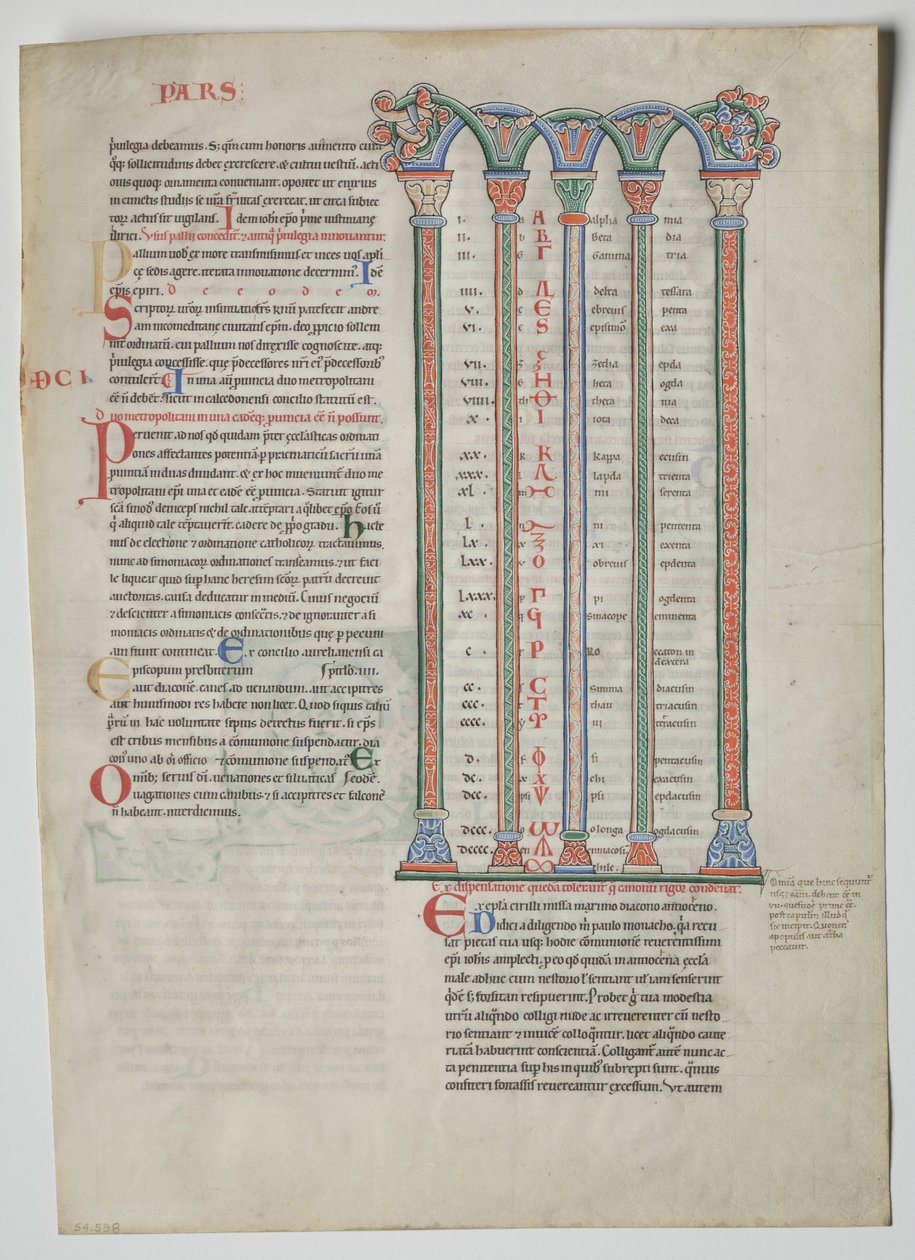 PARS
pͥuilegia debeamus. S; qm̄ cum honoris aum̄to cura
q̄q; sollicitudinis debet excrescere. & cultui uestiū. acti
onis quoq; ornamenta conueniant. oportet ut enixius
in cunctis studijs se uͬa fͬnitas exerceat. ut circa subiec
toꝝ actus sit uigilans. Idem ioh̄i ep̄o pͥme iustiniane
illirici. Vsus pallii concedit᷑. ⁊ antiq̄ pͥuilegia innouantur.
Pallium uob̄ ex more transmisimus et uices uos apl̄i
cę sedis agere. iterata innouatione decernim᷒. Idē
ep̄is epiri. d e e o d e m.
Scriptoꝝ uꝛ̄oꝝ
am nicomeditanę ciuitatis ep̄m. deo p̱picio sollem
nit̄ ordinatū. cui pallium nos direxisse cognoscite. atq;
pͥuilegia concessisse. que p̄decessores nr̄i ei᷒ p̄decessorib᷒
contulert̄. In una aut̄ puincia duo metropolitani
DCI
eē n̄ debet̄. sicut in calcedonensi concilio statutū est.
Duo metropolitani in una eadēq; puincia eē n̄ possunt.
Peruenit ad nos qđ quidam p̄ter ęcclesiasticas ordinati
ones affectantes potentiā. p pracmaticū sacrū unā
puntiā in duas diuidant. & ex hoc inuenunt̄ duo me
tropolitani ep̄i una et eadē eē puincia. Statuit igitur
sc̄a sinođ deinceps nichil tale atteptari a q̄libet ep̄o. Eos ū
q̄ aliquid tale teptauerit̄. cadere de p̱pͥo gradu. Hacte
nus de electione ⁊ ordinatione catholicoꝝ tractauimus.
nunc ad simoniacoꝝ ordinationes transeamus. ⁊ ut faci
le liqueat quid sup hanc heresim sc̄oꝝ patrū decreuit
auctoritas. causa deducatur in mediū. Cuius negociū
⁊ descienter a simoniacis consecͣtis. ⁊ de ignorant̄ a si
moniacis ordinatis & de ordinationibus que ̨p pecun
am fiunt contineat. Ex concilio aurelianensi ca
Episcopum presbiterum pitl̄o. iiii.
aut diaconē. canes ad uenandum. aut accipitres
aut huiusmodi res habere non licet. Quod siquis taliū
psonaꝝ in hac uoluntate sepius detectus fuerit. si ep̄s
est tribus mensibus a cōmunione suspendatur. dia
con᷒ uno ab oī officio ⁊ cōmunione suspendat᷑. Ex
Omīb; seruis dī. uenationes et siluaticas eodē.
uagationes cum canibus. ⁊ si accipitres et falcones
n̄ habeant. interdicimus.
i. a A alpha mia
ii. b B beta dia
iii. G Γ Gamma tria
iiii. d Δ delta tessara
v. e E ebreuis penta
vi. S episimō exa
vii. Z zetha epda
viii. H heta ogda
viiii. th Θ theta nia
x. i I iota deca
xx. K K kappa ecusin
xxx. Λ lapda trienta
xl. m mi serenta
l. n ni pententa
lx. xi exenta
lxx. O obreuis epdenta
lxxx. p Π pi ogdenta
xc. q Ϥ sinacope enniuenta
c. P Ro ecaton in
decxera
cc. C simma diacusin
ccc. T thau triacusin
cccc. ui tetracusin
d. f Φ fi pentacusin
dc. X chi exacusin
dcc. psi Ψ psi epdacusin
dccc. ω o longa ogdacusin
dcccc. en enacosi
chile.
Ex dispensatione quedā tolerant᷑. q̄ canonū rigor condēnat.
Ex epl̄a cirilli missa maximo diacono antioceno.
Didici a diligendo m̄ paulo monacho. q̄ recu
sat pietas tua usq; hodie cōmunionē reuerentissimi
ep̄i ioh̄is amplecti. p eo qđ quidā in antiocena ęccl̄a
male adhuc cum nestorio l̄ sentiant ul̓ iam senserint
qͥdē s; forsitan resipuerint. Probet ḡ tua modestia
utrū aliqn̄do colligi nude ac irreuerenter cū nesto
rio sentiant ⁊ inuicē colloq̄ntur. licet aliqn̄do caute
riatā habuerint conscientiā. Colligant᷑ autē nunc ac
ta penitentia sup his in quib᷒ subrepti sunt. q̄nuis
confiteri fortassis reuereantur excessum. Vt autem
Omīa que hinc sequunt᷑
usq;
vii. questiōe prime cē.
post capitlm̄ illud q̄
sic incipit. Quotiens
a populis aut a t̄ba
peccatur.
54.598